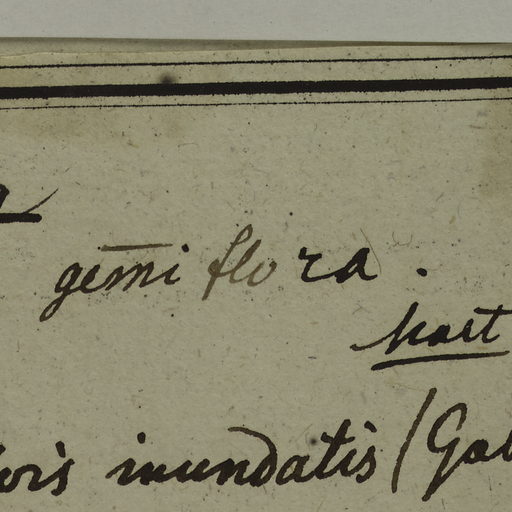 gem̅iflora.
Mart
inundatis (Gab